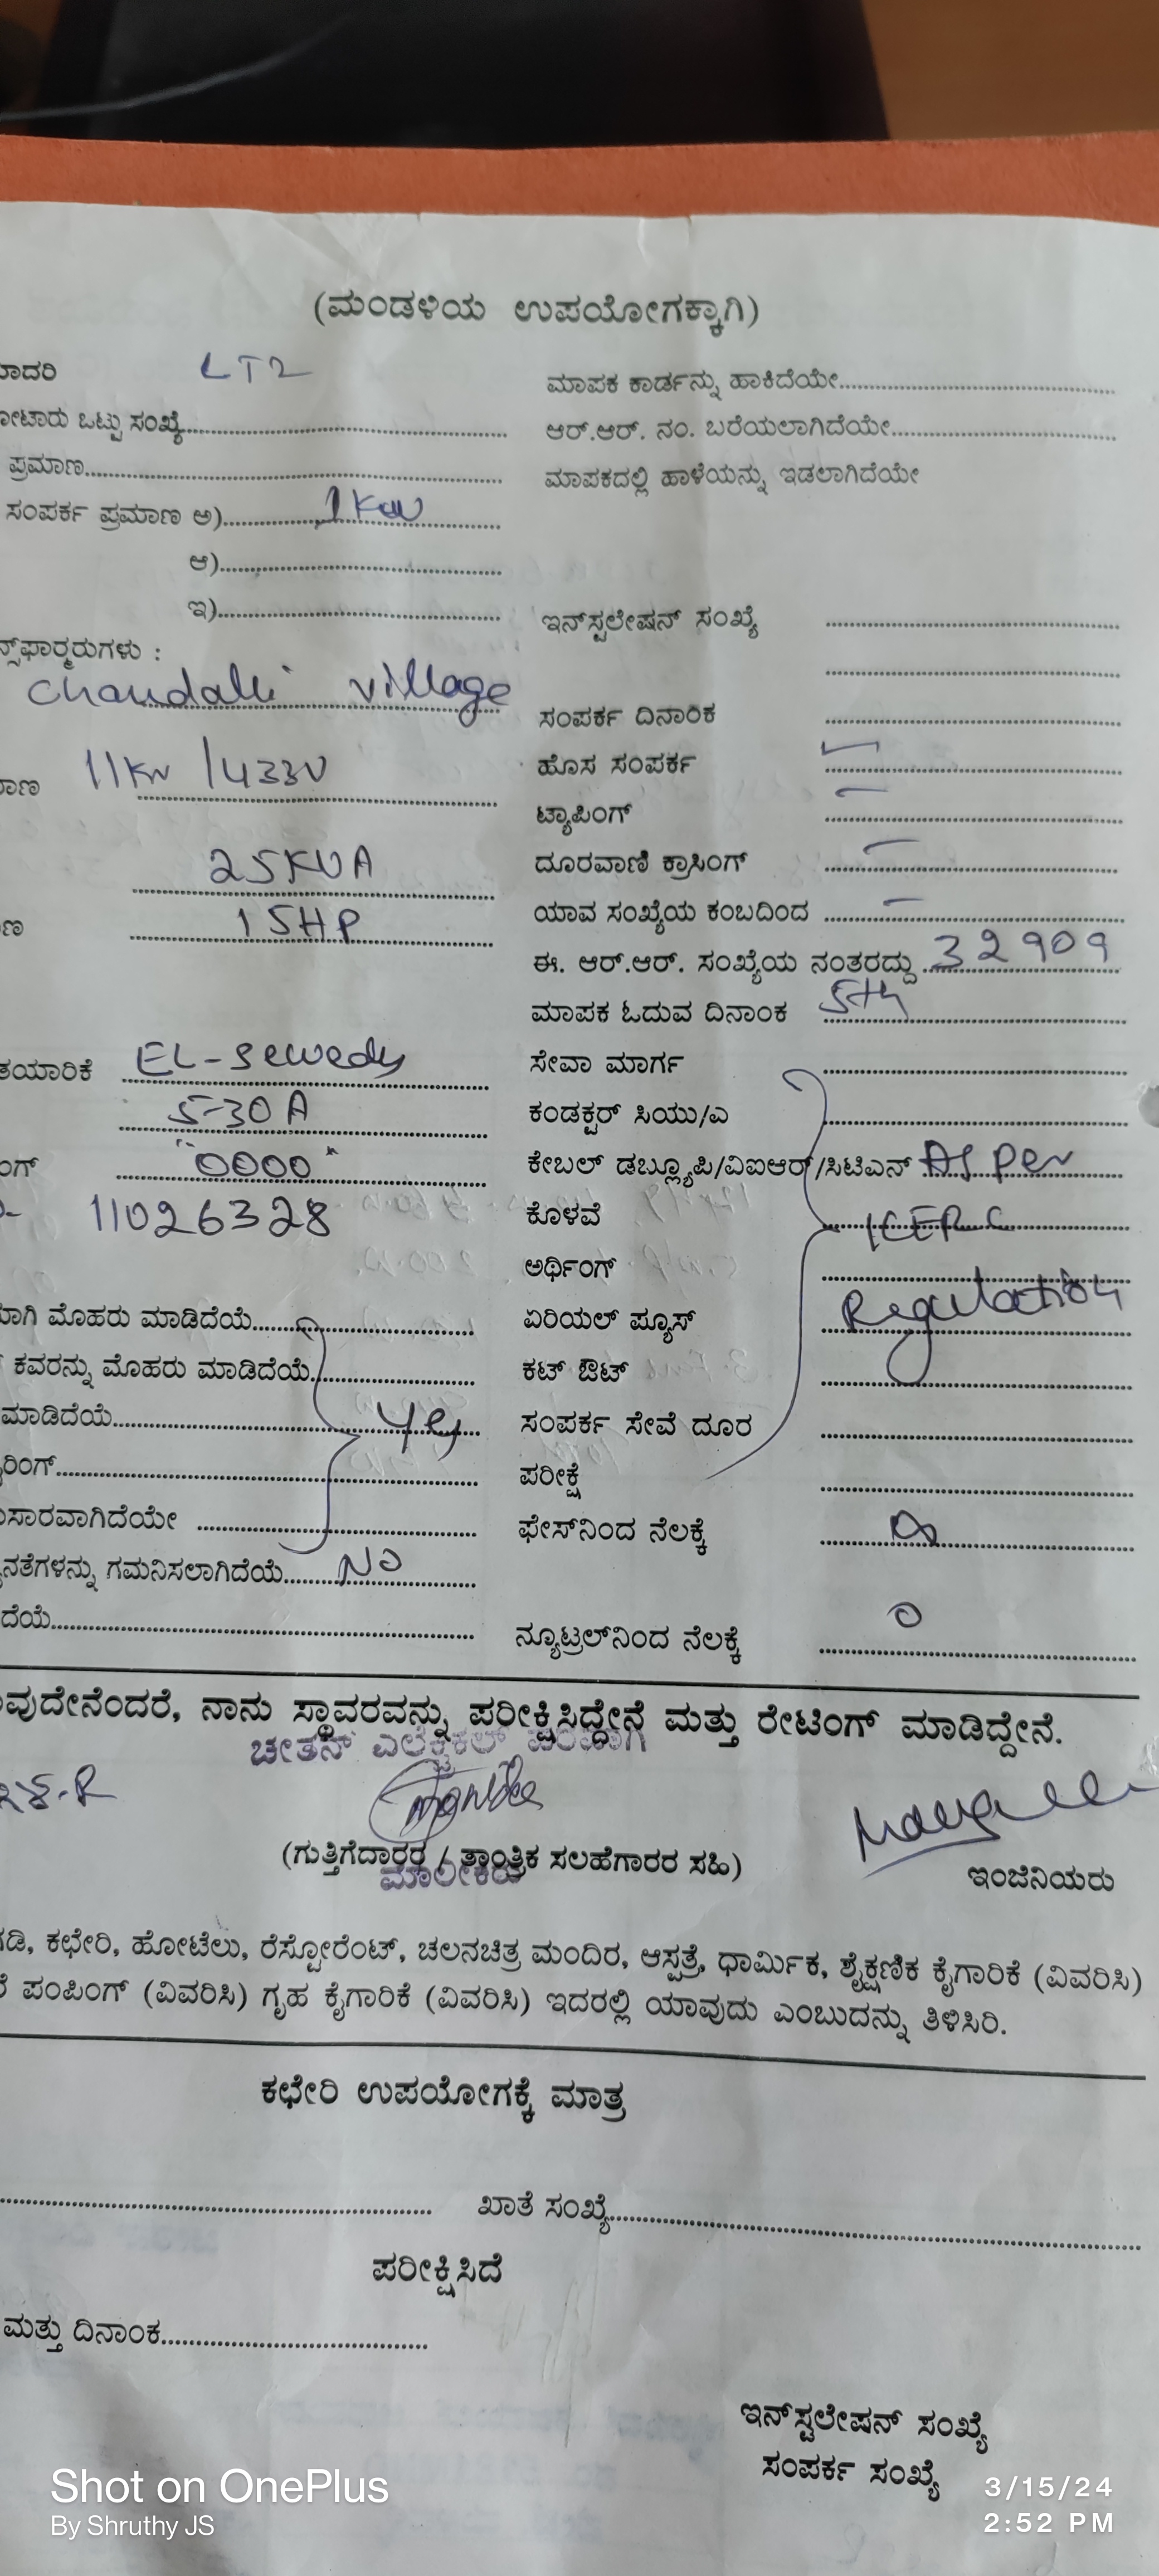 (ಮಂಡಳಿಯ ಉಪಯೋಗಕ್ಕಾಗಿ)
ಾದರಿ LT2
ಮಾಪಕ ಕಾರ್ಡನ್ನು ಹಾಕಿದೆಯೇ
ೋಟಾರು ಒಟ್ಟು ಸಂಖ್ಯೆ
ಆರ್.ಆರ್. ನಂ. ಬರೆಯಲಾಗಿದೆಯೇ
ಪ್ರಮಾಣ
ಮಾಪಕದಲ್ಲಿ ಹಾಳೆಯನ್ನು ಇಡಲಾಗಿದೆಯೇ
ಸಂಪರ್ಕ ಪ್ರಮಾಣ ಅ) 1KW
ಆ)
ಇ)
ಇನ್‌ಸ್ಟಲೇಷನ್ ಸಂಖ್ಯೆ
ನ್ಸ್‌ಫಾರ್‍ಮರುಗಳು :
Chandalli village
ಸಂಪರ್ಕ ದಿನಾಂಕ
ಹೊಸ ಸಂಪರ್ಕ
ಾಣ 11KV /433V
ಟ್ಯಾಪಿಂಗ್
25KVA
ದೂರವಾಣಿ ಕ್ರಾಸಿಂಗ್
ಣ 15HP
ಯಾವ ಸಂಖ್ಯೆಯ ಕಂಬದಿಂದ
ಈ. ಆರ್.ಆರ್. ಸಂಖ್ಯೆಯ ನಂತರದ್ದು 32909
ಮಾಪಕ ಓದುವ ದಿನಾಂಕ 5th
ತಯಾರಿಕೆ EL-Sewedy
ಸೇವಾ ಮಾರ್ಗ
5-30A
ಕಂಡಕ್ಟರ್ ಸಿಯು/ಎ
ಂಗ್ "0000"
ಕೇಬಲ್ ಡಬ್ಲ್ಯೂಪಿ/ವಿಐಆರ್/ಸಿಟಿಎನ್ As per
- 11026328
ಕೊಳವೆ KERC
ಅರ್ಥಿಂಗ್
ಾಗಿ ಮೊಹರು ಮಾಡಿದೆಯೆ
ಏರಿಯಲ್ ಪ್ಯೂಸ್ Regulation
ಕವರನ್ನು ಮೊಹರು ಮಾಡಿದೆಯೆ
ಕಟ್ ಔಟ್
ಮಾಡಿದೆಯೆ Yes
ಸಂಪರ್ಕ ಸೇವೆ ದೂರ
ರಿಂಗ್
ಪರೀಕ್ಷೆ
ುಸಾರವಾಗಿದೆಯೇ
ಫೇಸ್‌ನಿಂದ ನೆಲಕ್ಕೆ
ನತೆಗಳನ್ನು ಗಮನಿಸಲಾಗಿದೆಯೆ NO
ದೆಯೆ
ನ್ಯೂಟ್ರಲ್‌ನಿಂದ ನೆಲಕ್ಕೆ 0
ವುದೇನೆಂದರೆ, ನಾನು ಸ್ಥಾವರವನ್ನು ಪರೀಕ್ಷಿಸಿದ್ದೇನೆ ಮತ್ತು ರೇಟಿಂಗ್ ಮಾಡಿದ್ದೇನೆ.
ಚೇತನ್ ಎಲೆಕ್ಟ್ರಿಕಲ್ ಪರವಾಗಿ
(ಗುತ್ತಿಗೆದಾರರ / ತಾಂತ್ರಿಕ ಸಲಹೆಗಾರರ ಸಹಿ)
ಮಾಲೀಕರು
ಇಂಜಿನಿಯರು
ಡಿ, ಕಛೇರಿ, ಹೋಟೆಲು, ರೆಸ್ಟೋರೆಂಟ್, ಚಲನಚಿತ್ರ ಮಂದಿರ, ಆಸ್ಪತ್ರೆ, ಧಾರ್ಮಿಕ, ಶೈಕ್ಷಣಿಕ ಕೈಗಾರಿಕೆ (ವಿವರಿಸಿ)
ೆ ಪಂಪಿಂಗ್ (ವಿವರಿಸಿ) ಗೃಹ ಕೈಗಾರಿಕೆ (ವಿವರಿಸಿ) ಇದರಲ್ಲಿ ಯಾವುದು ಎಂಬುದನ್ನು ತಿಳಿಸಿರಿ.
ಕಛೇರಿ ಉಪಯೋಗಕ್ಕೆ ಮಾತ್ರ
ಖಾತೆ ಸಂಖ್ಯೆ
ಪರೀಕ್ಷಿಸಿದೆ
ಮತ್ತು ದಿನಾಂಕ
ಇನ್‌ಸ್ಟಲೇಷನ್ ಸಂಖ್ಯೆ
ಸಂಪರ್ಕ ಸಂಖ್ಯೆ
Shot on OnePlus
By Shruthy JS
3/15/24
2:52 PM